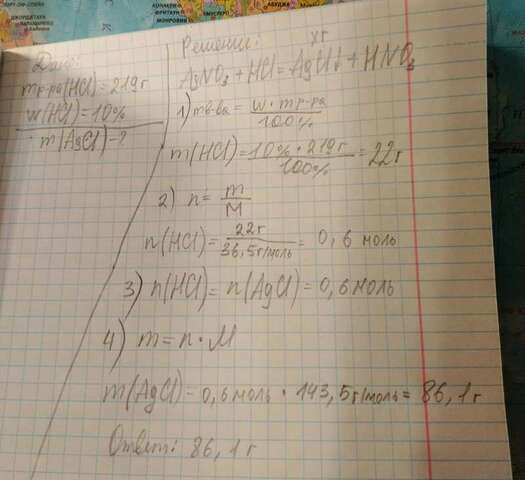 Дано:
mр-ра(HCl)=219г
w(HCl)=10%
m(AgCl)-?
Решение:
xг
AgNO₃ + HCl = AgCl↓ + HNO₃
1) mв-ва = w · mр-ра / 100%
m(HCl) = 10% · 219г / 100% = 22г
2) n = m / M
n(HCl) = 22г / 36,5г/моль = 0,6 моль
3) n(HCl) = n(AgCl) = 0,6 моль
4) m = n · M
m(AgCl) = 0,6 моль · 143,5г/моль = 86,1 г
Ответ: 86,1 г